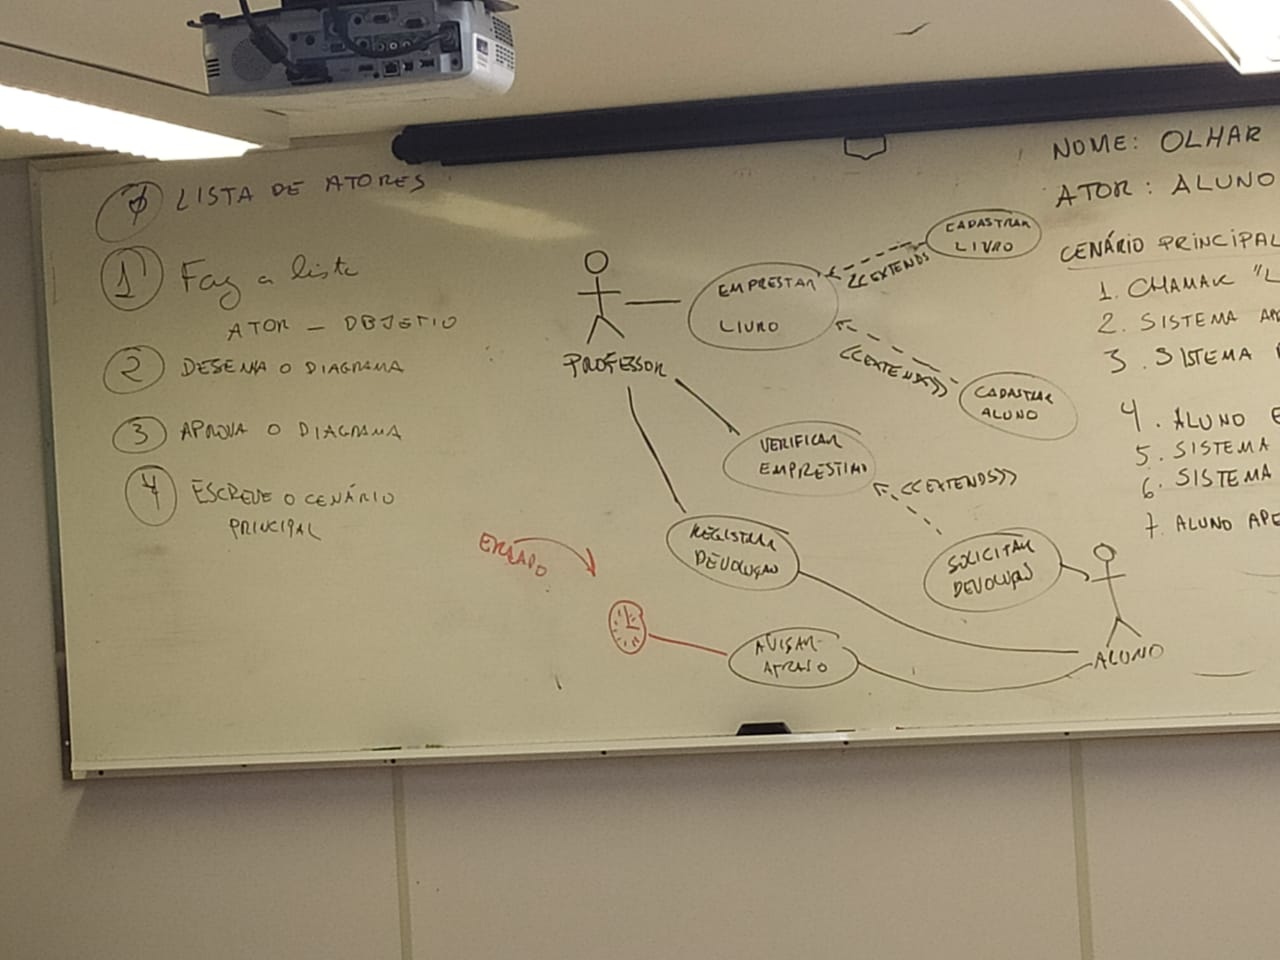 0 LISTA DE ATORES
1 Faz a lista
ATOR — OBJETIVO
2 DESENHA O DIAGRAMA
3 APROVA O DIAGRAMA
4 ESCREVE O CENÁRIO
PRINCIPAL
PROFESSOR
EMPRESTAR
LIVRO
CADASTRAR
LIVRO
<<EXTENDS
<<EXTENDS>>
CADASTRAR
ALUNO
VERIFICAR
EMPRESTIMO
<<EXTENDS>>
REGISTRAR
DEVOLUÇÃO
SOLICITAR
DEVOLUÇÃO
ERRADO
AVISAR
ATRASO
ALUNO
NOME: OLHAR
ATOR: ALUNO
CENÁRIO PRINCIPAL
1. CHAMAR "L
2. SISTEMA APE
3. SISTEMA
4. ALUNO E
5. SISTEMA
6. SISTEMA
7. ALUNO APE